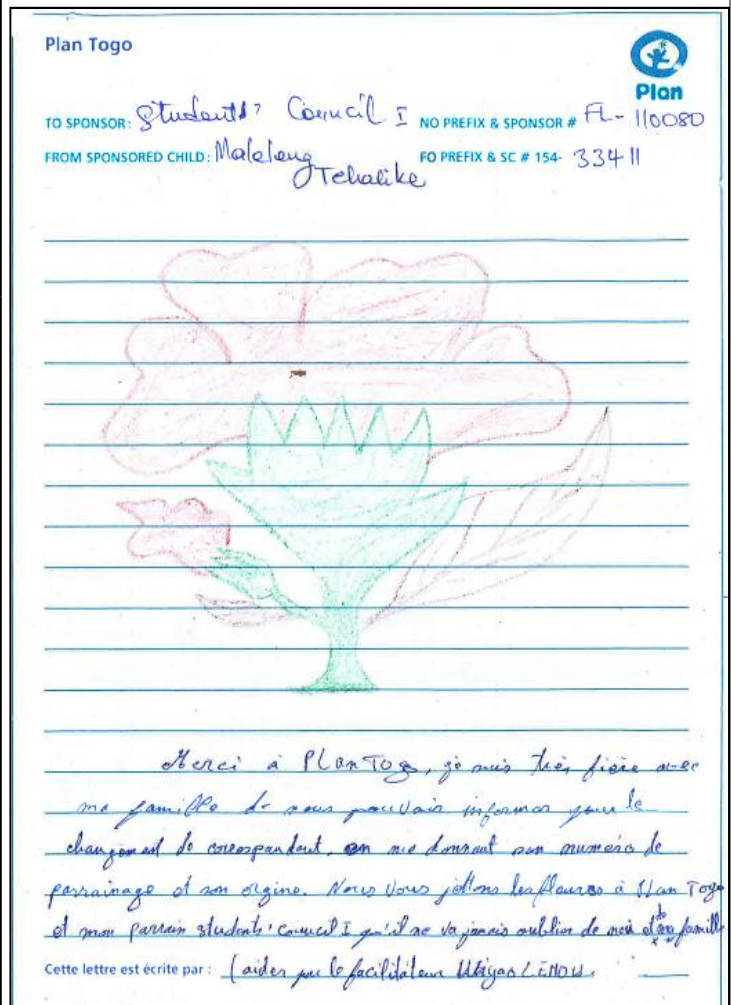 Plan Togo
Plan
TO SPONSOR: Students' Council I NO PREFIX & SPONSOR # FL-110080
FROM SPONSORED CHILD: FO PREFIX & SC # 154- 33411
Tchalike
Merci à Plan Togo, je suis très fière avec
ma famille de nous pouvoir informer pour le
changement de correspondant, en me donnant son numéro de
parrainage et son orgine. Nous vous jettons les fleures à Plan Togo
et mon parrain students' council I qu'il ne va jamais oublier de moi et de ma famille
Cette lettre est écrite par : (aider par le facilitateur